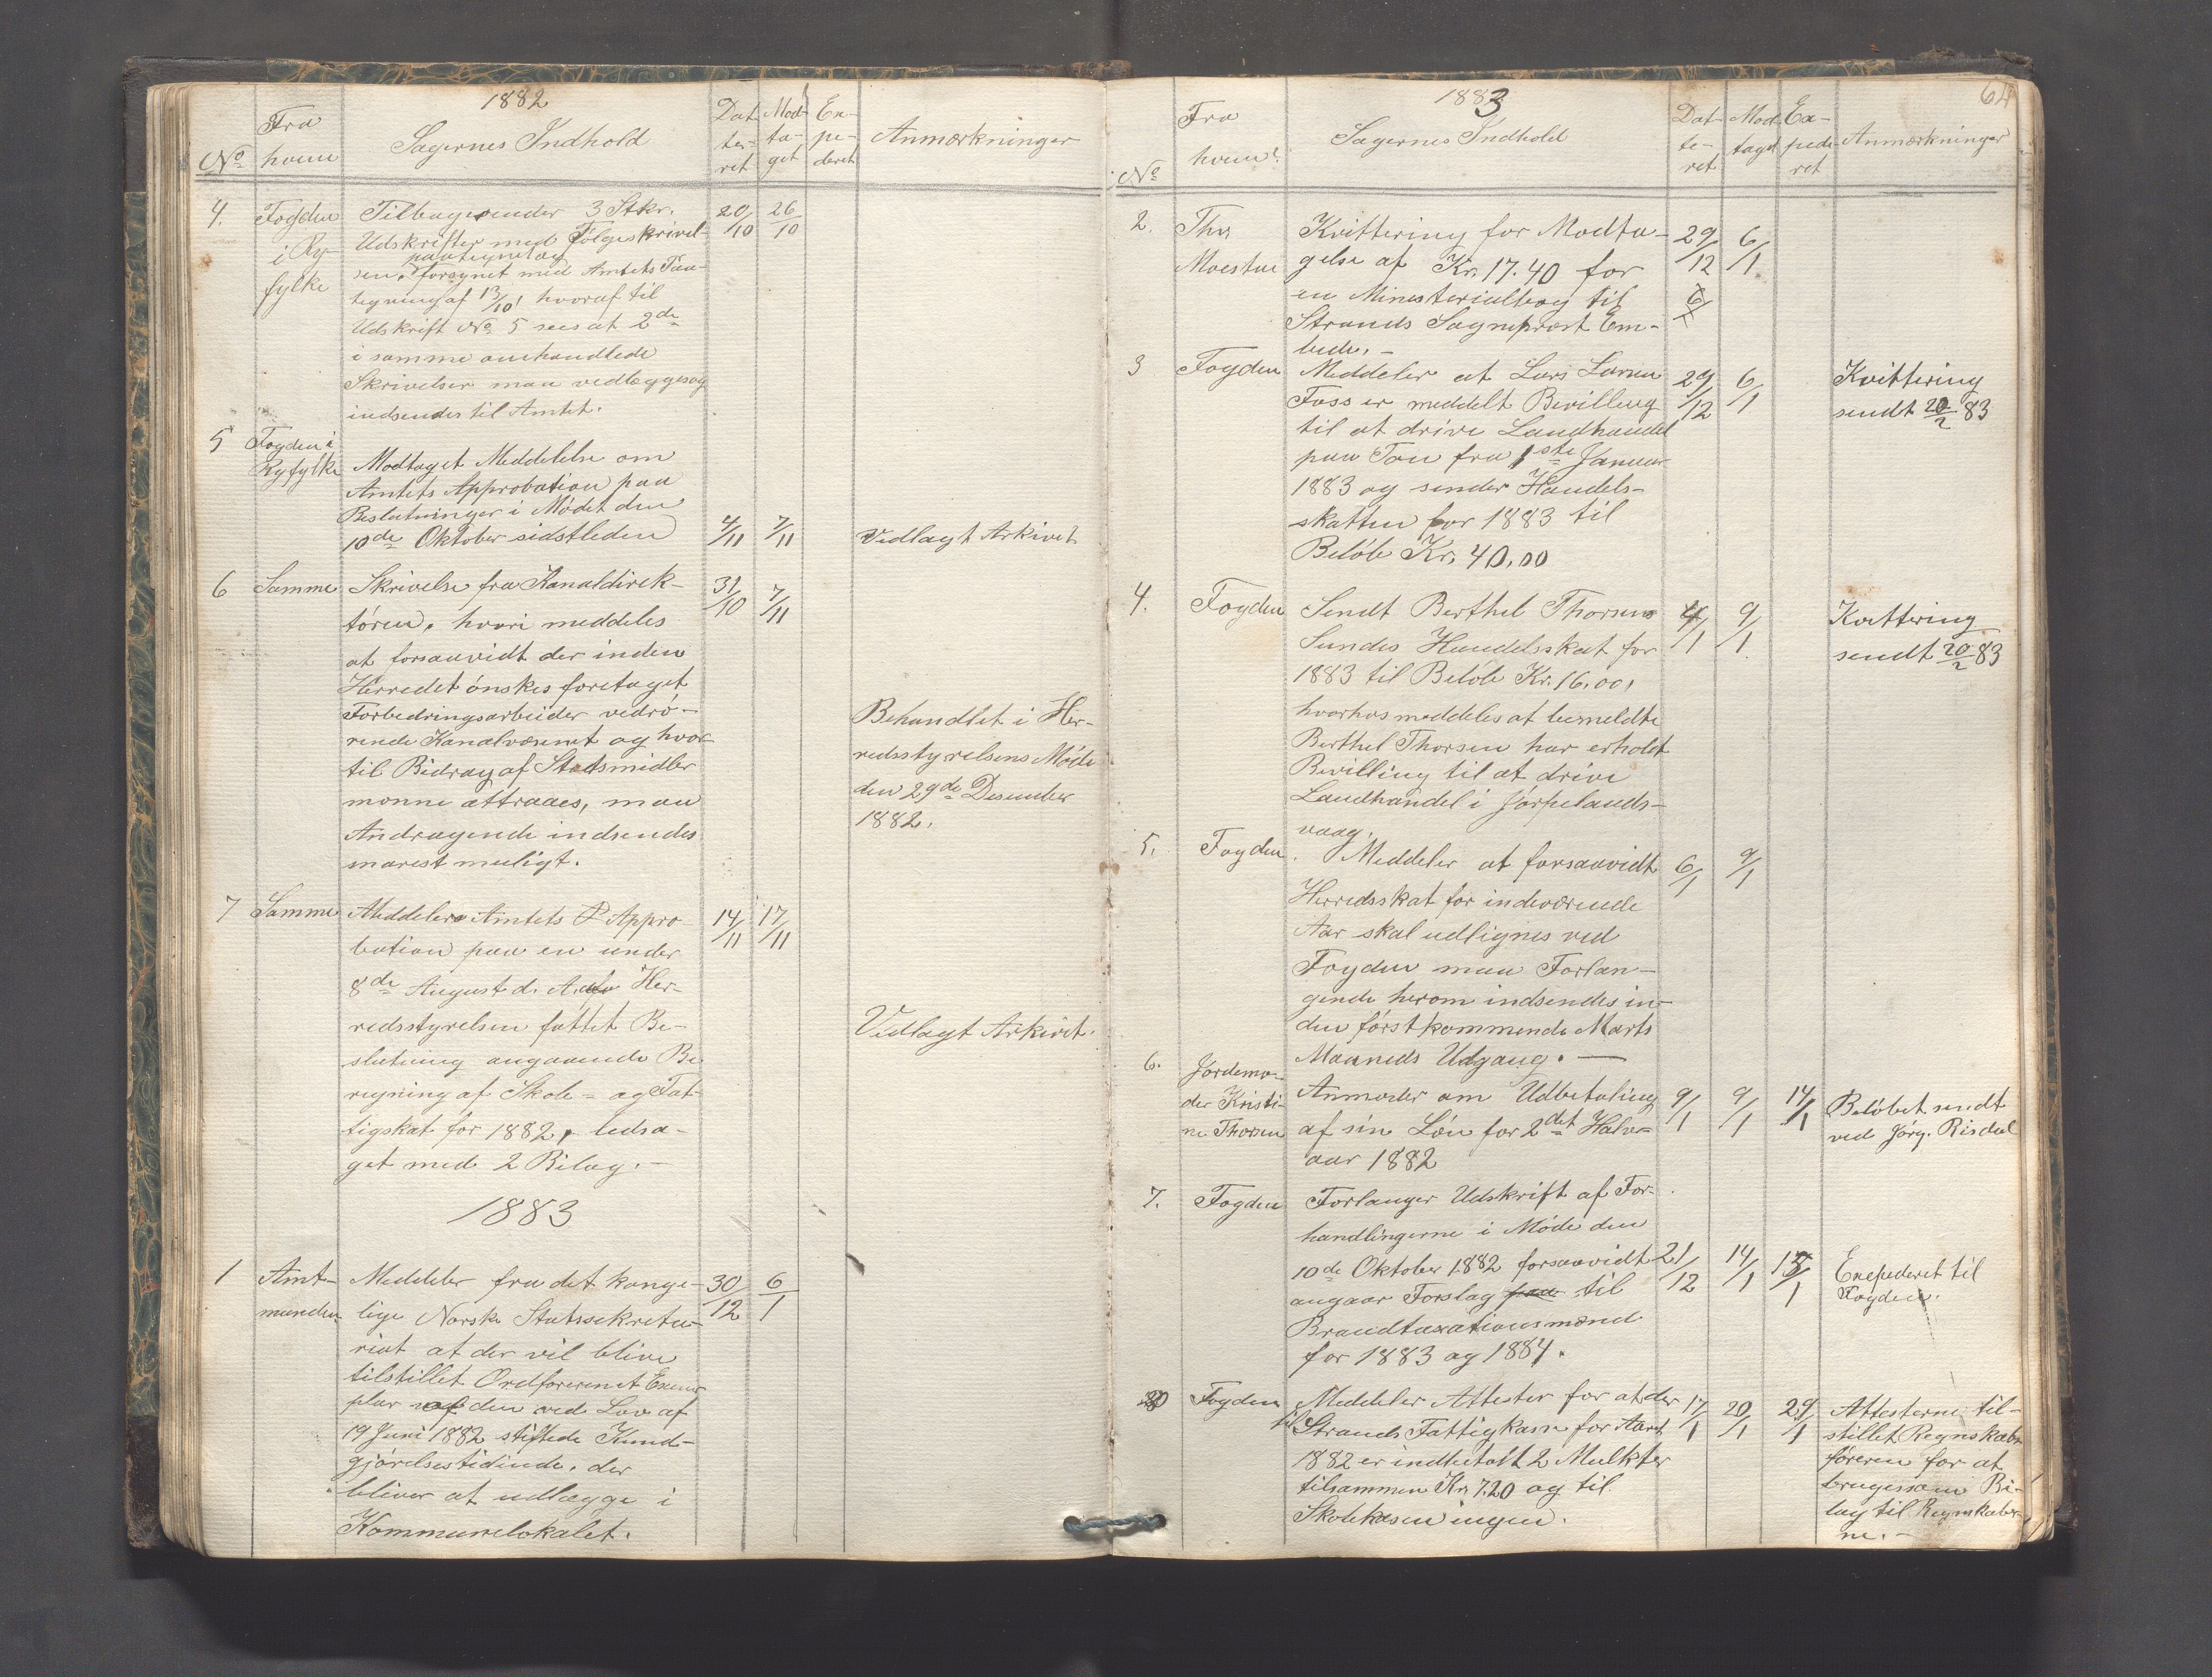 1882
No
Fra hvem
Sagernes Indhold
Datteret
Modtaget
Expederet
Anmærkninger
4.
Fogden
i Ry-
fylke
Tilbagesender 3 Stkr.
Udskrifter med Følgeskrivel-
paategnet og
sen, forsynet med Amtets Paa-
tegning af 13/10, hvoraf til
Udskrift No 5 sees at 2de
i samme omhandlede
Skrivelser maa vedlægges og
indsendes til Amtet.
20/10
26/10
5
Fogden i
Ryfylke
Modtaget Meddelelse om
Amtets Approbation paa
Beslutninger i Mødet den
10de Oktober sidstleden
4/11
7/11
Vedlagt Arkivet
6
Samme
Skrivelse fra Kanaldirek-
tøren, hvori meddeles
at forsaavidt der inden
Herredet ønskes foretaget
Forbedringsarbeider vedrø-
rende Kanalvæsenet og hvor-
til Bidrag af Statsmidler
monne attraaes, maa
Andragende indsendes
snarest muligt.
31/10
7/11
Behandlet i Her-
redsstyrelsens Møde
den 29de Desember
1882.
7
Samme
Meddeler Amtets Appro-
bation paa en under
8de August d. A. af Her-
redsstyrelsen fattet Be-
slutning angaaende Be-
regning af Skole- og Fat-
tigskat for 1882, ledsa-
get med 2 Bilag.-
14/11
17/11
Vedlagt Arkivet.
1883
1
Amt-
manden
Meddeler fra det konge-
lige Norske Statssekreta-
riat at der vil blive
tilstillet Ordføreren et Exem-
plar af den ved Lov af
19 Juni 1882 stiftede Kund-
gjørelsestidinde, der
bliver at udlægge i
Kommunelokalet.
30/12
6/1
64
1883
No
Fra hvem?
Sagernes Indhold
Datteret
Modtaget
Expederet
Anmærkninger
2.
Thv
Moestue
Kvittering for Modta-
gelse af Kr. 17.40 for
en Ministerialbog til
Strands Sogneprest Em-
bede.-
29/12
6/1
3
Fogden
Meddeler at Lars Larsen
Foss er meddelt Bevilling
til at drive Landhandel
paa Tau fra 1ste Januar
1883 og sender Handels-
skatten for 1883 til
Beløb Kr. 40.00
29/12
6/1
Kvittering
sendt 20/2 83
4.
Fogden
Sendt Berthel Thorsens
Sundes Handelsskat for
1883 til Beløb Kr. 16.00,
hvorhos meddeles at bemeldte
Berthel Thorsen har erholdt
Bevilling til at drive
Landhandel i Jørpelands-
vaag.
4/1
9/1
Kvittering
sendt 20/2 83
5.
Fogden.
Meddeler at forsaavidt
Herredsskat for indeværende
Aar skal udlignes ved
Fogden maa Forlan-
gende herom indsendes in-
den først kommende Marts
Maaneds Udgang. —
6/1
9/1
6.
Jordemo-
der Kristi-
ne Thorsen
Anmoder om Udbetaling
af sin Løn for 2det Halv-
aar 1882
9/1
9/1
14/1
Beløbet sendt
ved Jørg. Risdal
7.
Fogden
Forlanger Udskrift af For-
handlingerne i Møde den
10de Oktober 1882 forsaavidt
angaar Forslag paa til
Brandtaxationsmænd
for 1883 og 1884.
21/12
14/1
15/1
Exepederet til
Fogden.
8
Fogden
Meddeler Attester for at der
til Strands Fattigkasse for Aaret
1882 er indbetalt 2 Mulkter
tilsammen Kr. 7.20 og til
Skolekassen ingen.
17/1
20/1
29/1
Attesterne til-
stillet Regnskabs-
føreren for at
bruges som Bi-
lag til Regnskaber-
ne.-